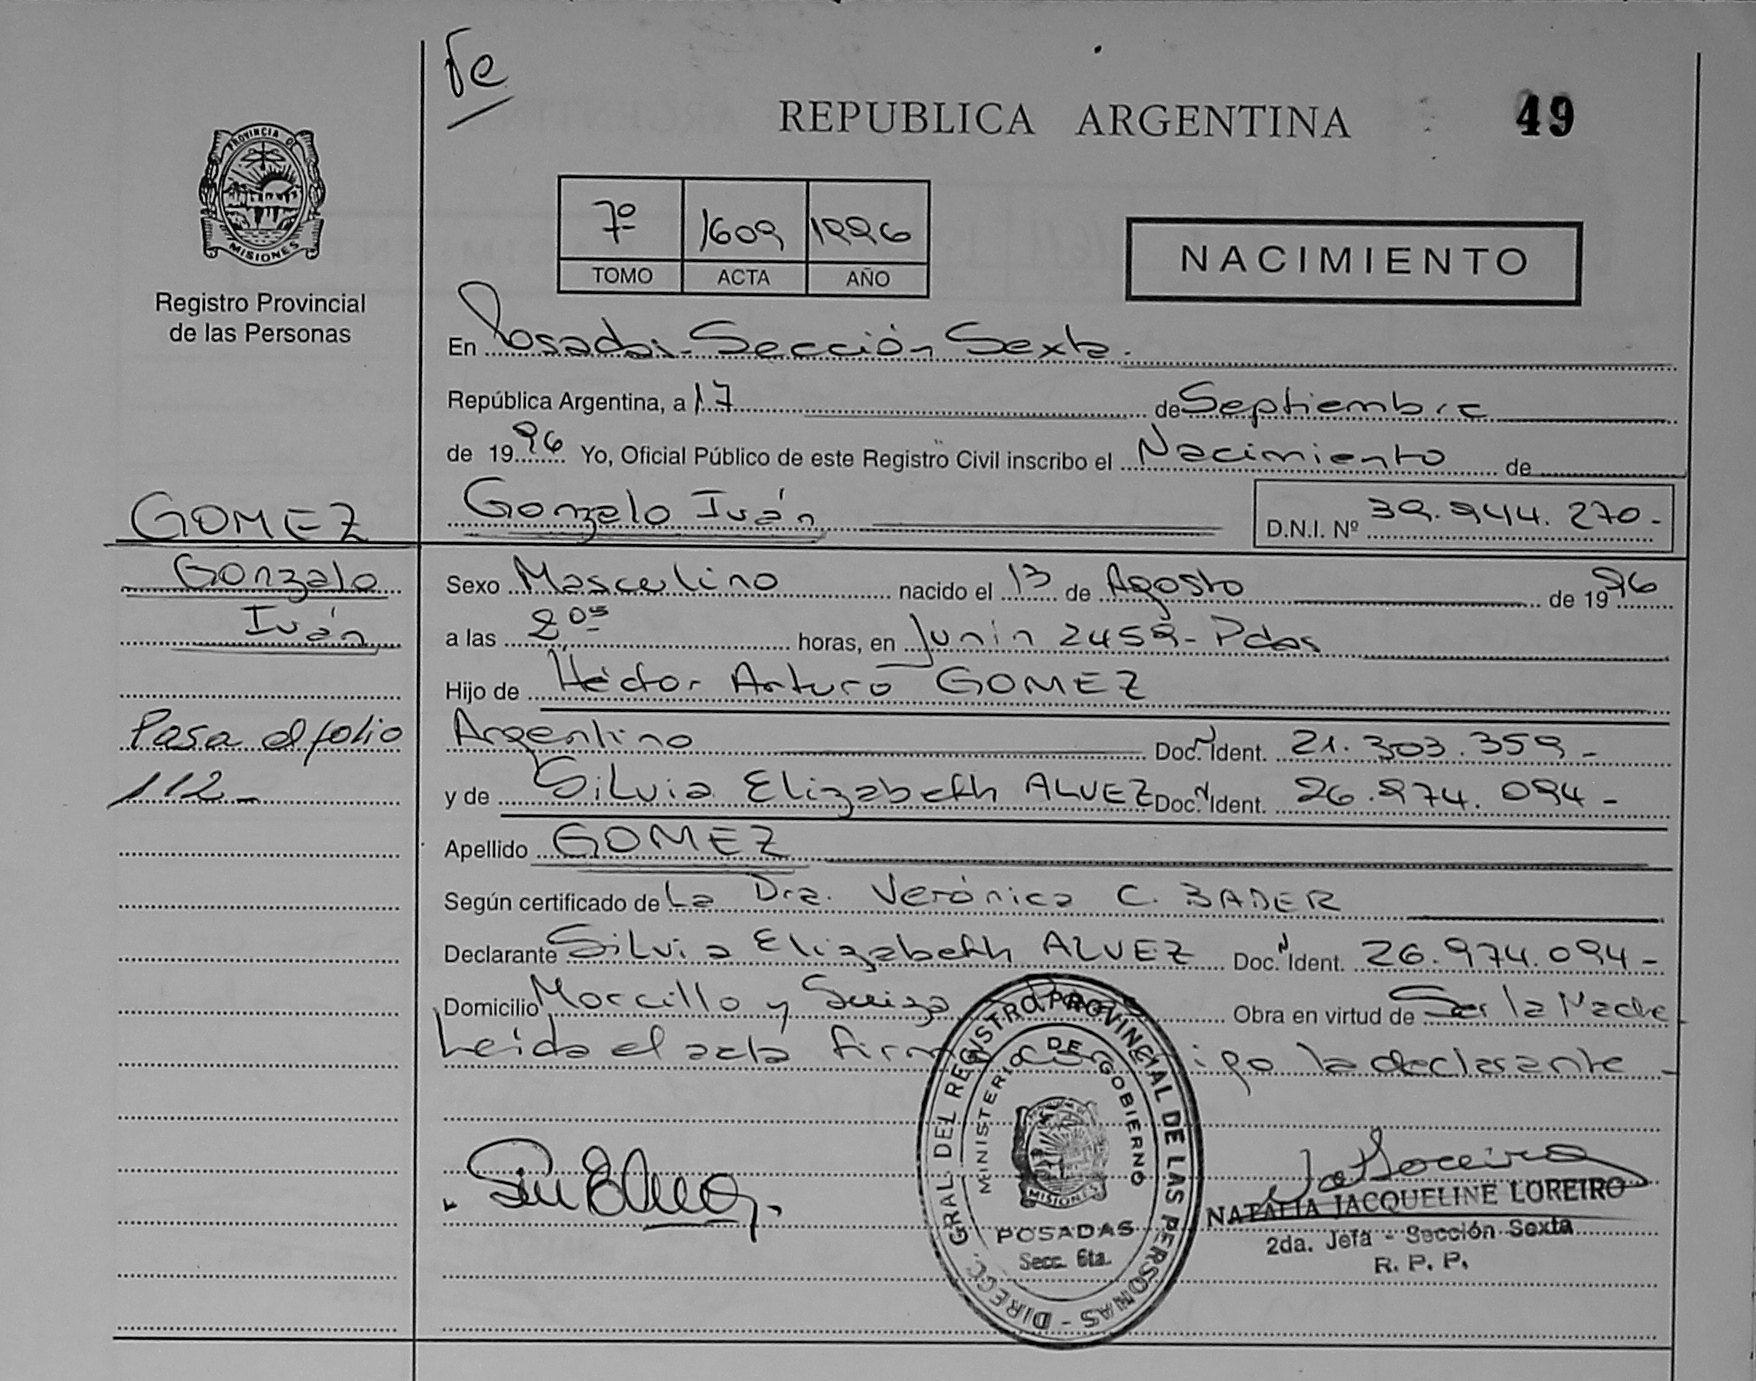 Te
REPUBLICA ARGENTINA
49
PROVINCIA DE
MISIONES
Registro Provincial
de las Personas
7º 1609 1996
TOMO ACTA AÑO
NACIMIENTO
En Posadas - Sección Sexta.
República Argentina, a 17 de Septiembre
de 1996 Yo, Oficial Público de este Registro Civil inscribo el Nacimiento de
GOMEZ Gonzalo Iván D.N.I. Nº 39.944.270.-
Gonzalo
Iván
Pasa al folio
112-
Sexo Masculino nacido el 13 de Agosto de 1996
a las 2 05 horas, en Junin 2459 - Pdas
Hijo de Héctor Arturo GOMEZ
Argentino Doc. Ident. 21.303.359 -
y de Silvia Elizabeth ALVEZ Doc. Ident. 26.974.094 -
Apellido GOMEZ
Según certificado de La Dra. Verónica C. BADER
Declarante Silvia Elizabeth ALVEZ Doc. Ident. 26.974.094 -
Domicilio Morcillo y Suiza Obra en virtud de Ser la Madre
Leida el acta firma conmigo la declarante -
DIREC. GRAL. DEL REGISTRO PROVINCIAL DE LAS PERSONAS -
MINISTERIO DE GOBIERNO
MISIONES
POSADAS
Secc. 6ta.
NATALIA JACQUELINE LOREIRO
2da. Jefa - Sección Sexta
R. P. P.